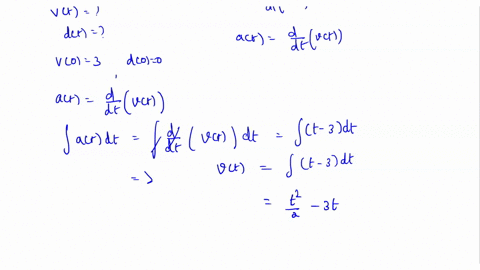 v(t) = ?
d(t) = ?
a(t) = d/dt (v(t))
v(0) = 3 d(0) = 0
a(t) = d/dt (v(t))
∫ a(t) dt = ∫ d/dt (v(t)) dt = ∫ (t - 3) dt
=> v(t) = ∫ (t - 3) dt
= t²/2 - 3t